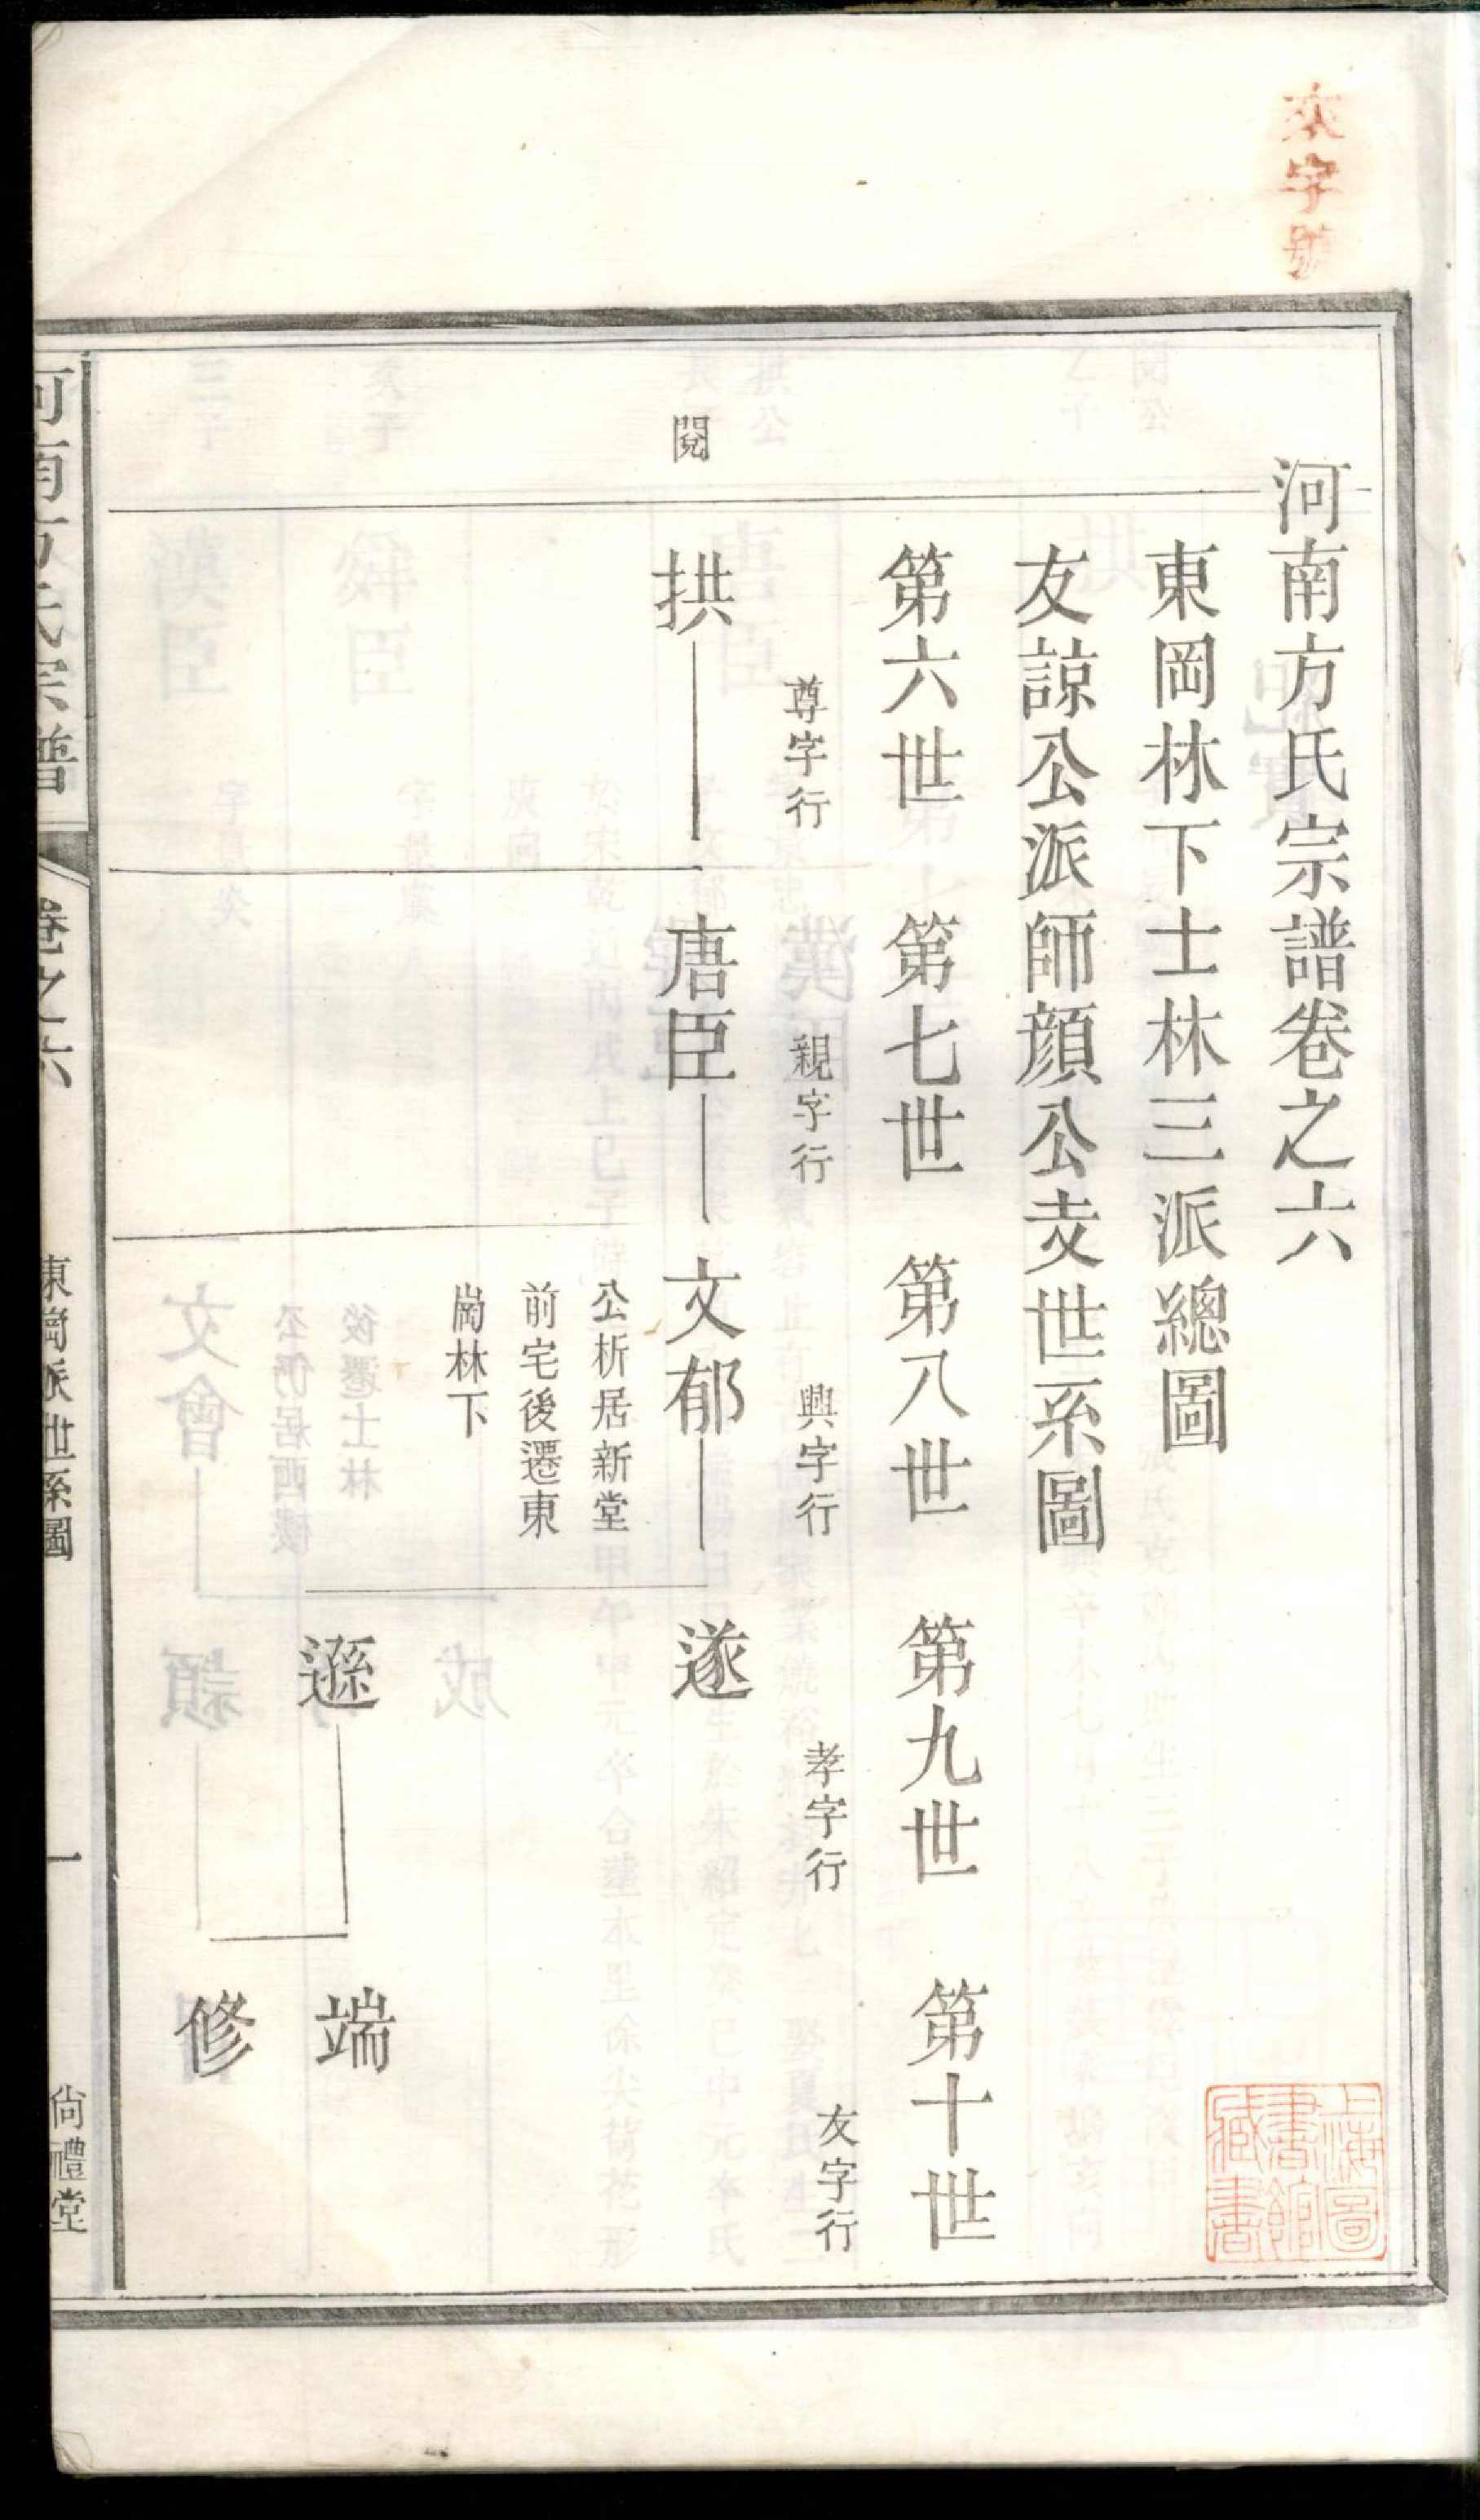 來字號
河南方氏宗譜卷之六
東岡林下士林三派總圖
友諒公派師顔公支世系圖
第六世 第七世 第八世 第九世 第十世
尊字行 親字行 興字行 孝字行 友字行
閱
拱 唐臣 文郁 遂
公析居新堂
前宅後遷東
崗林下
遜 端
修
河南方氏宗譜 卷之六 東崗派世系圖 一 尚禮堂
上海圖
書館
藏書